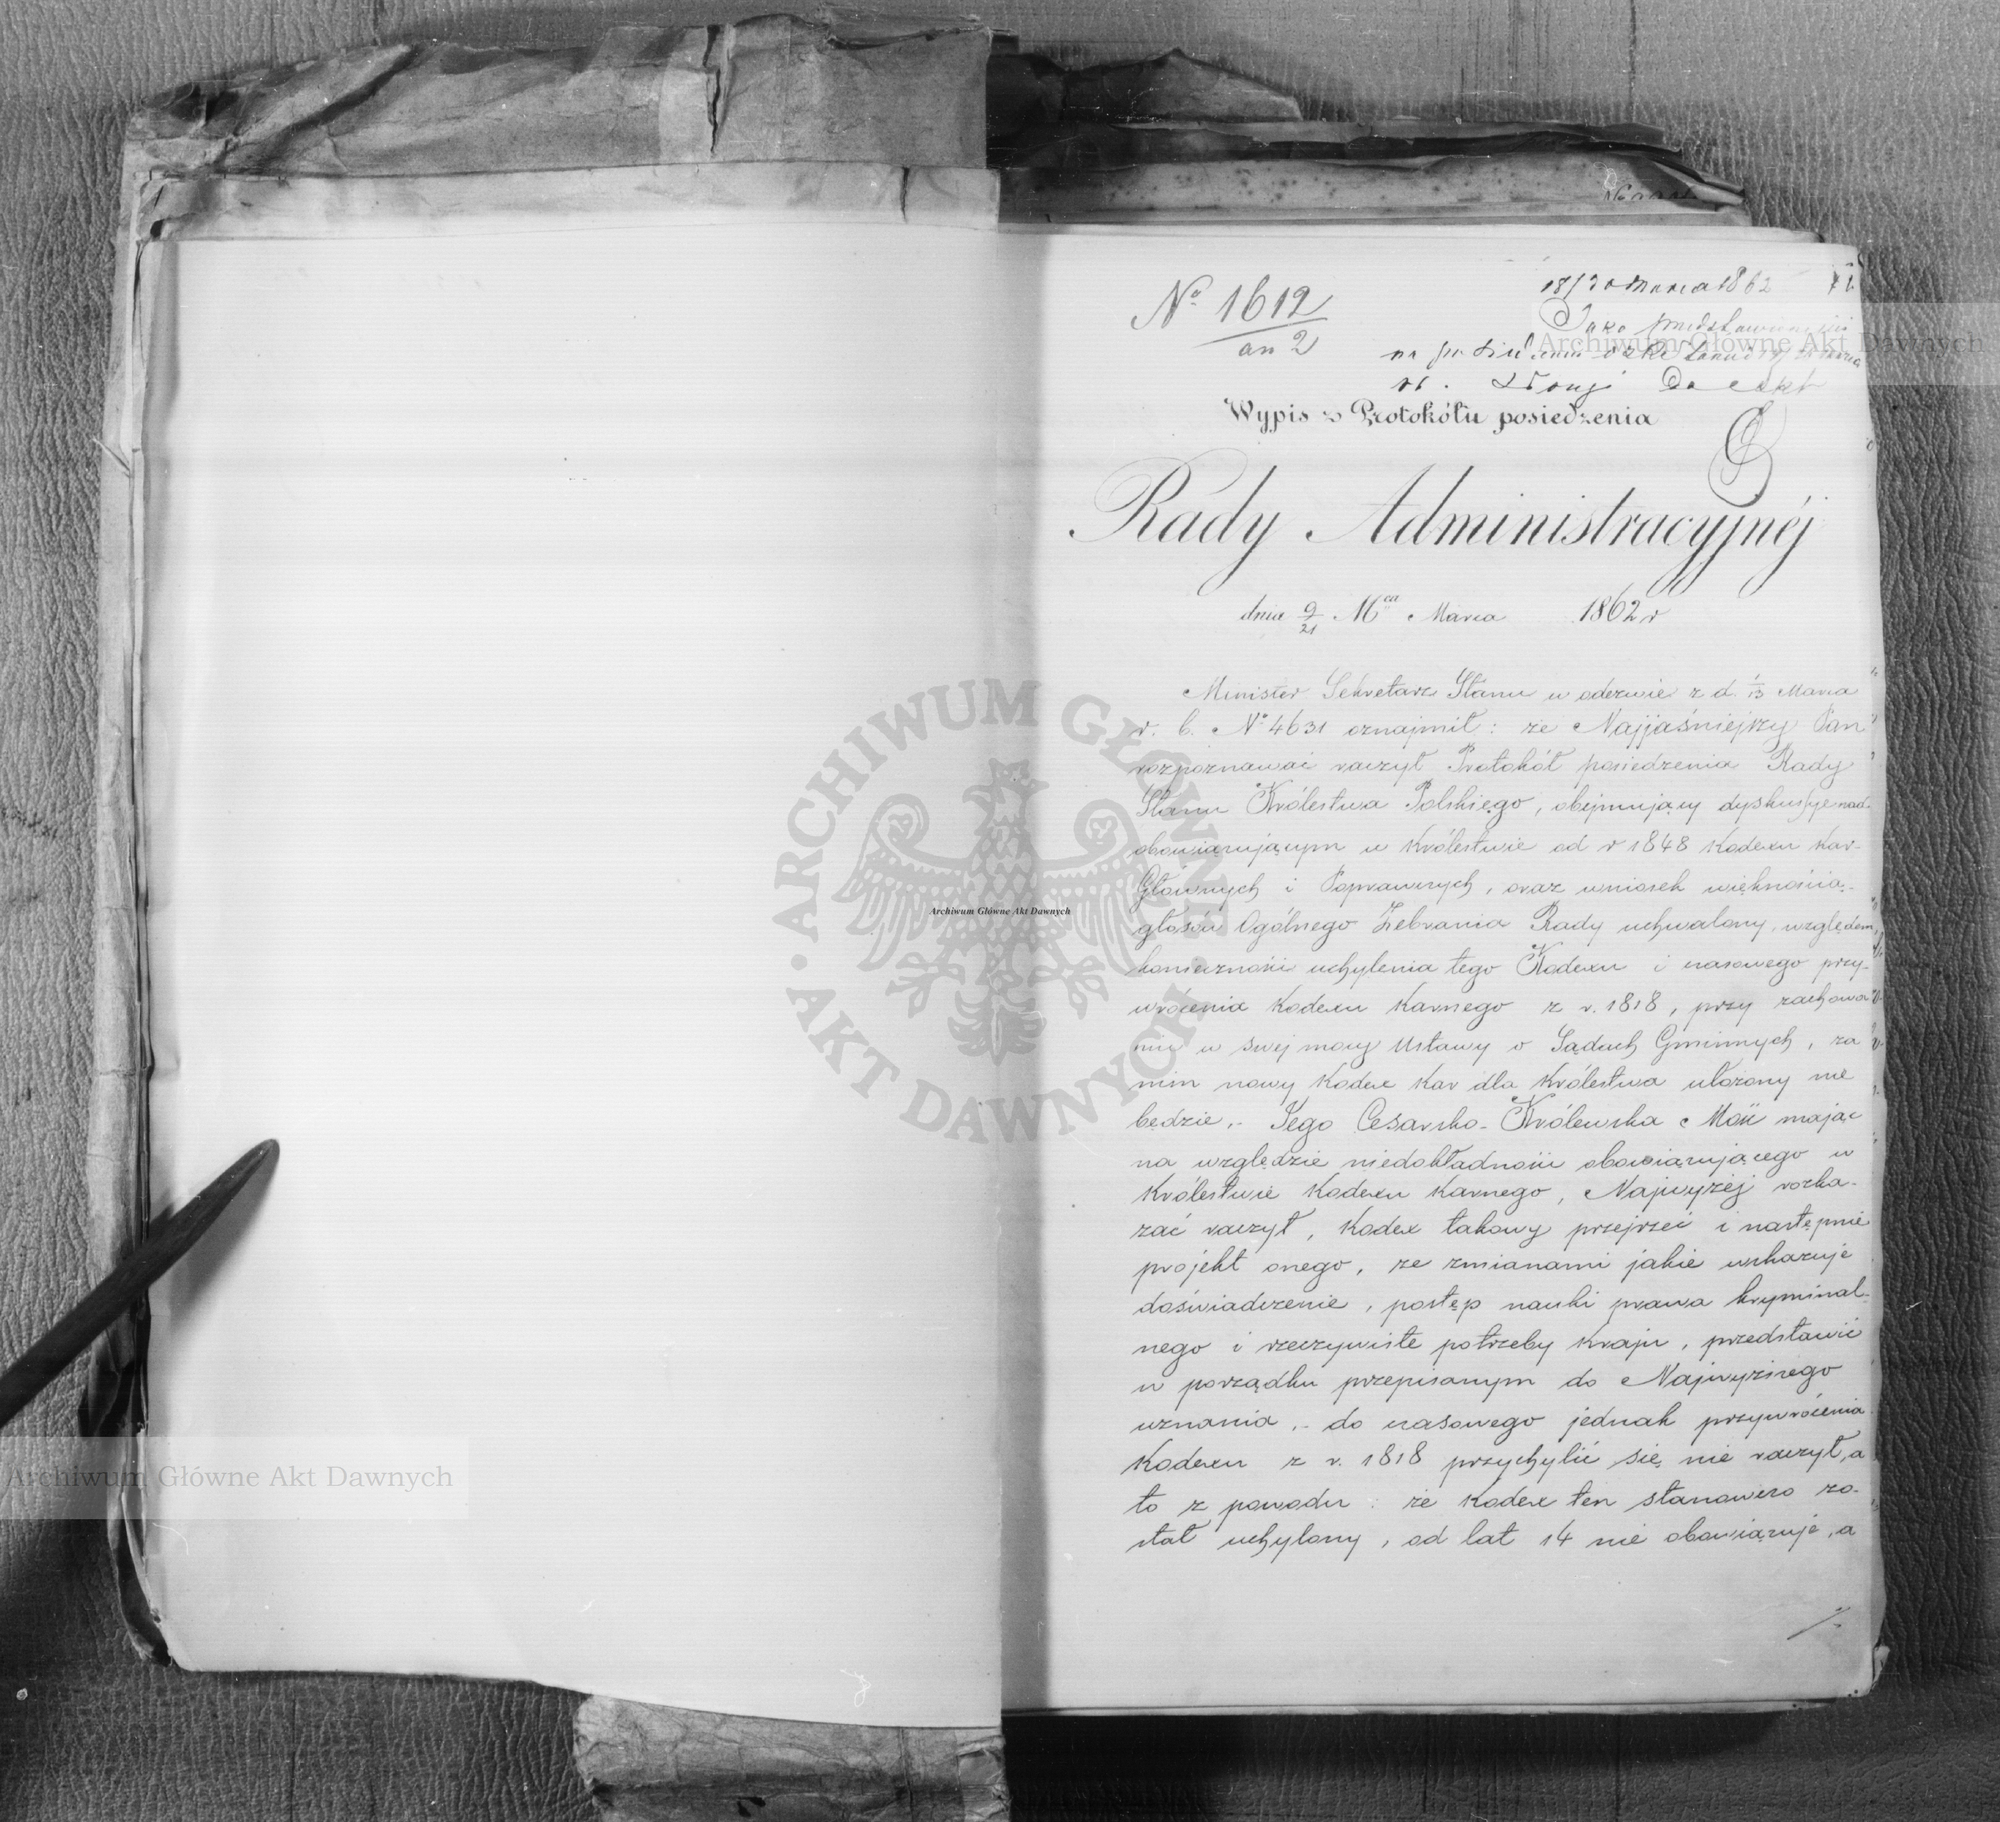 № 1612
an 2
18/30 Marca 1862
Jako przedstawione już
na posiedzeniu
Wypis z Protokółu posiedzenia
Rady Administracyjnéj
dnia 9/21 Mca Marca 1862 r
Minister Sekretarz Stanu w odezwie z d. 1/13 Marca
r. b. № 4631 oznajmił: że Najjaśniejszy Pan
rozpoznawać raczył Protokół posiedzenia Rady
Stanu Królestwa Polskiego, obejmujący dyskussye nad
obowiązującym w Królestwie od r 1848 Kodexu Kar
Głównych i Poprawczych, oraz wniosek większością
głosów Ogólnego Zebrania Rady uchwalony, względem
konieczności uchylenia tego Kodexu i czasowego przy-
wrócenia Kodexu Karnego z r. 1818, przy zachowa
niu w swej mocy Ustawy o Sądach Gminnych, za
nim nowy Kodex Kar dla Królestwa ułożony nie
będzie.- Jego Cesarsko-Królewska Mość mając
na względzie niedokładności obowiązującego w
Królestwie Kodexu Karnego, Najwyżéj rozka-
zać raczył, Kodex takowy przejrzeć i następnie
projekt onego, ze zmianami jakie wskazuje
doświadczenie, postęp nauki prawa kryminal-
nego i rzeczywiste potrzeby Kraju, przedstawić
w porządku przepisanym do Najwyższego
uznania.- do czasowego jednak przywrócenia
Kodexu z r. 1818 przychylić się nie raczył, a
to z powodu: że Kodex ten stanowczo zo-
stał uchylony, od lat 14 nie obowiązuje, a
Archiwum Główne Akt Dawnych
Archiwum Główne Akt Dawnych
Archiwum Główne Akt Dawnych
ARCHIWUM GŁÓWNE AKT DAWNYCH